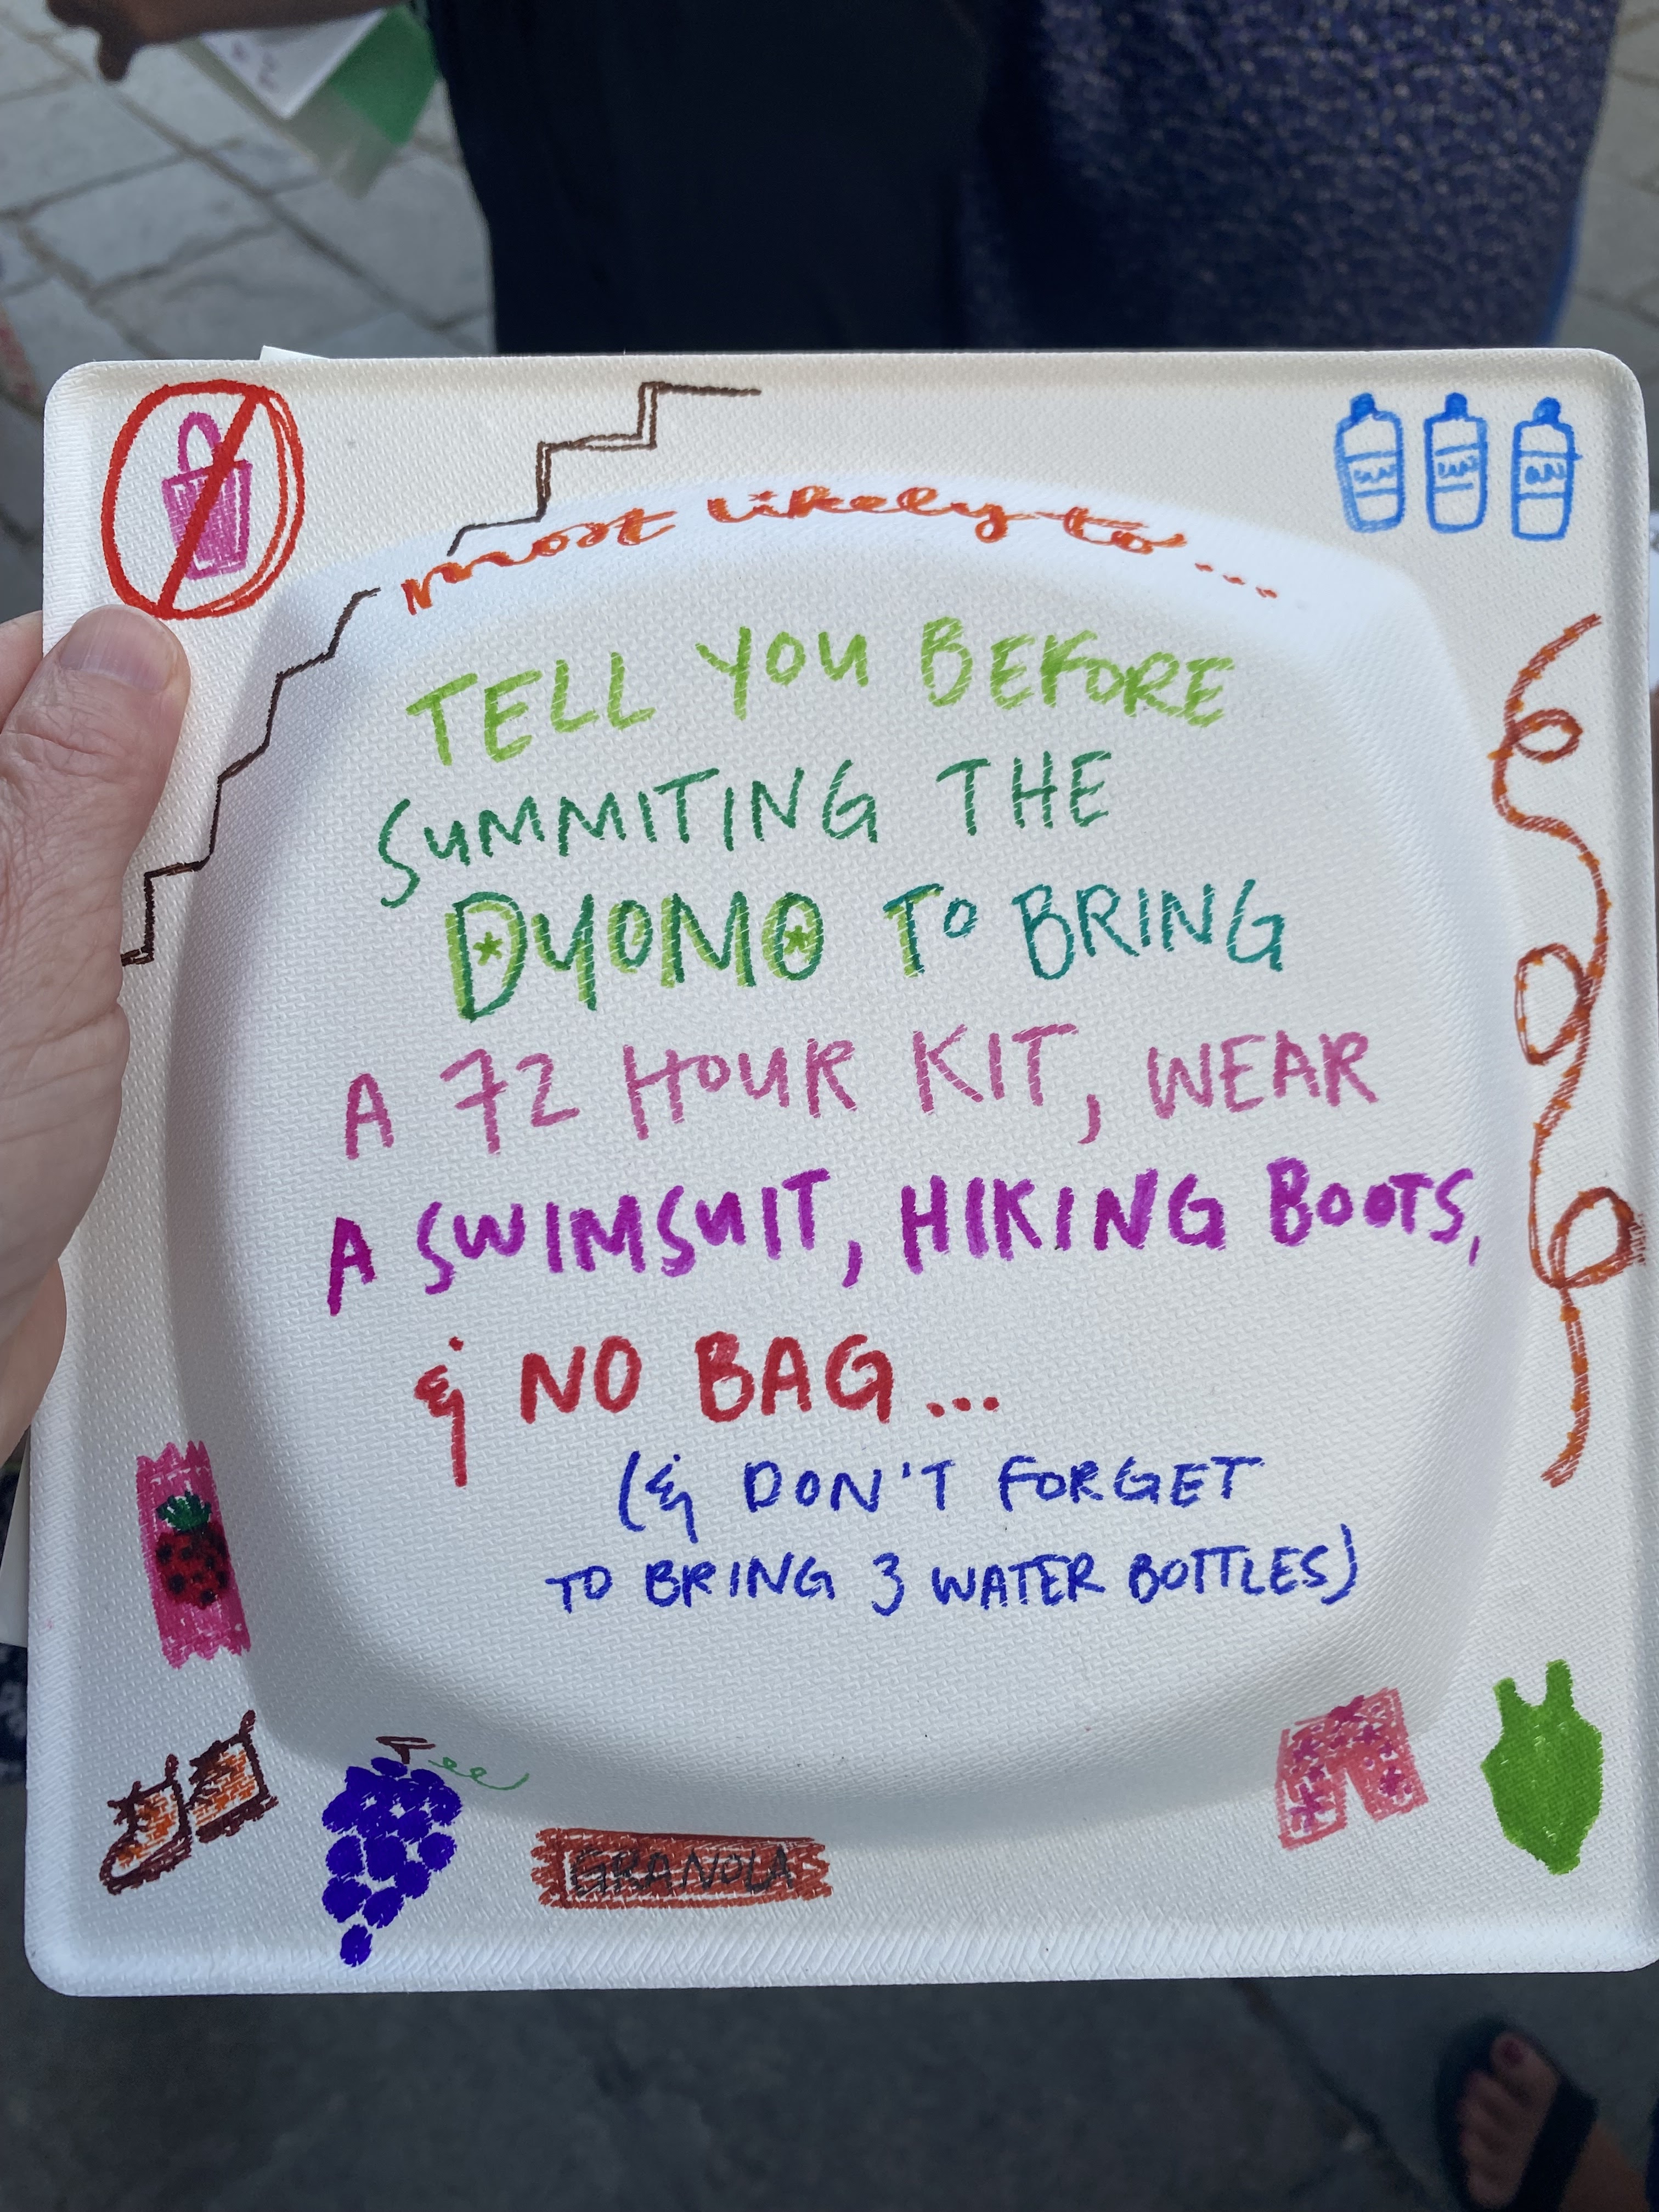 most likely to...
TELL YOU BEFORE
SUMMITING THE
DUOMO TO BRING
A 72 HOUR KIT, WEAR
A SWIMSUIT, HIKING BOOTS,
& NO BAG...
(& DON'T FORGET
TO BRING 3 WATER BOTTLES)
GRANOLA